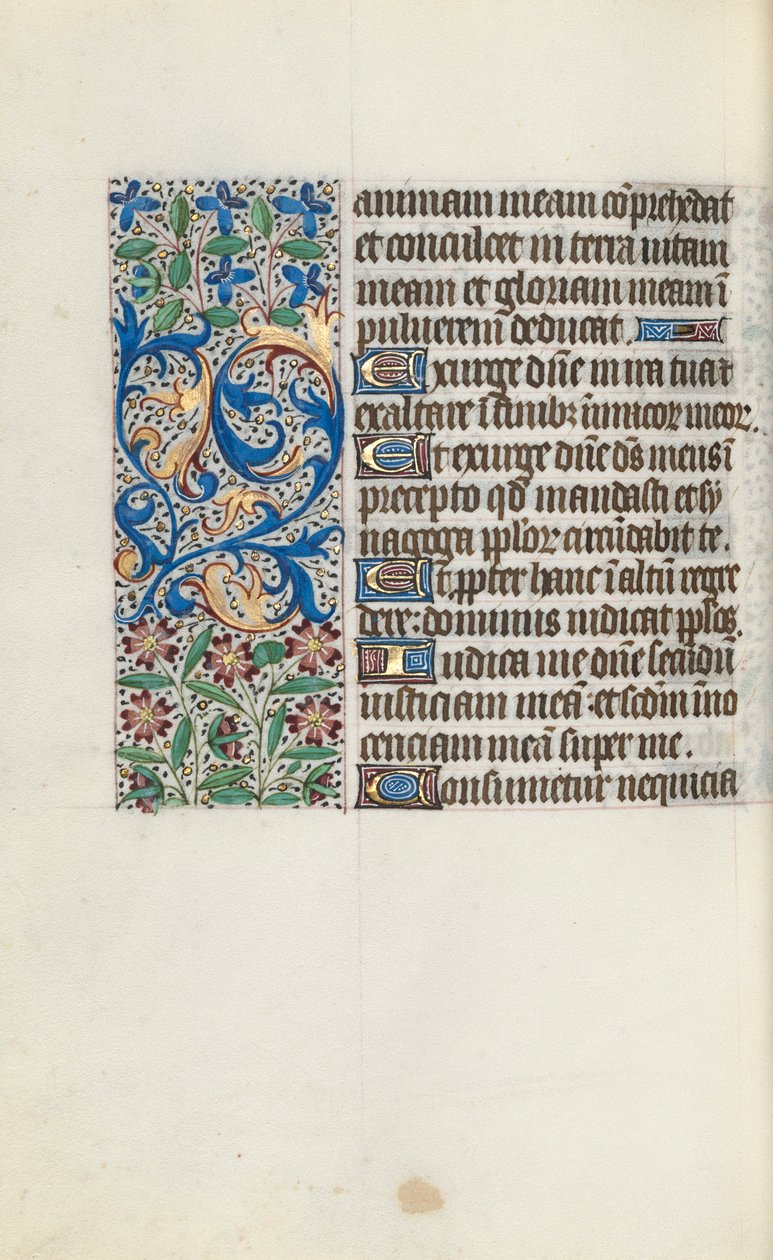 animam meam cõprehẽdat
et conculcet in terra uitam
meam et gloriam meam ĩ
puluerem deducat.
Exurge dñe in ira tua et
exaltare ĩ finibꝫ inimicoꝝ meoꝝ.
Et exurge dñe ds̃ meus ĩ
precepto qd̃ mandasti et sy
nagoga ppl̃oꝝ circũdabit te.
Et ppter hanc ĩ altũ regre
dere: dominus iudicat ppl̃os.
Iudica me dñe secũdũ
iusticiam meã: et scdm̃ ĩno
cenciam meã super me.
Consumetur nequicia